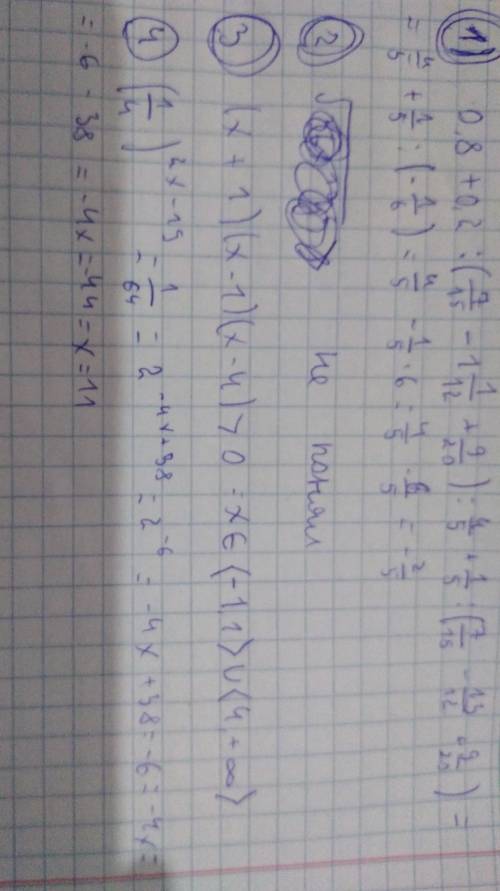 1) 0,8 + 0,2 : (7/15 - 1 1/12 + 9/20) = 4/5 + 1/5 : (7/15 - 13/12 + 9/20) =
= 4/5 + 1/5 : (-1/6) = 4/5 - 1/5 · 6 = 4/5 - 6/5 = -2/5
2 √ не понял
3 (x + 1)(x - 1)(x - 4) > 0 = x ∈ ⟨-1,1⟩ ∪ ⟨4, +∞⟩
4 (1/4)^2x-19 = 1/64 = 2^-4x+38 = 2^-6 = -4x + 38 = -6 = -4x =
= -6 - 38 = -4x = -44 = x = 11